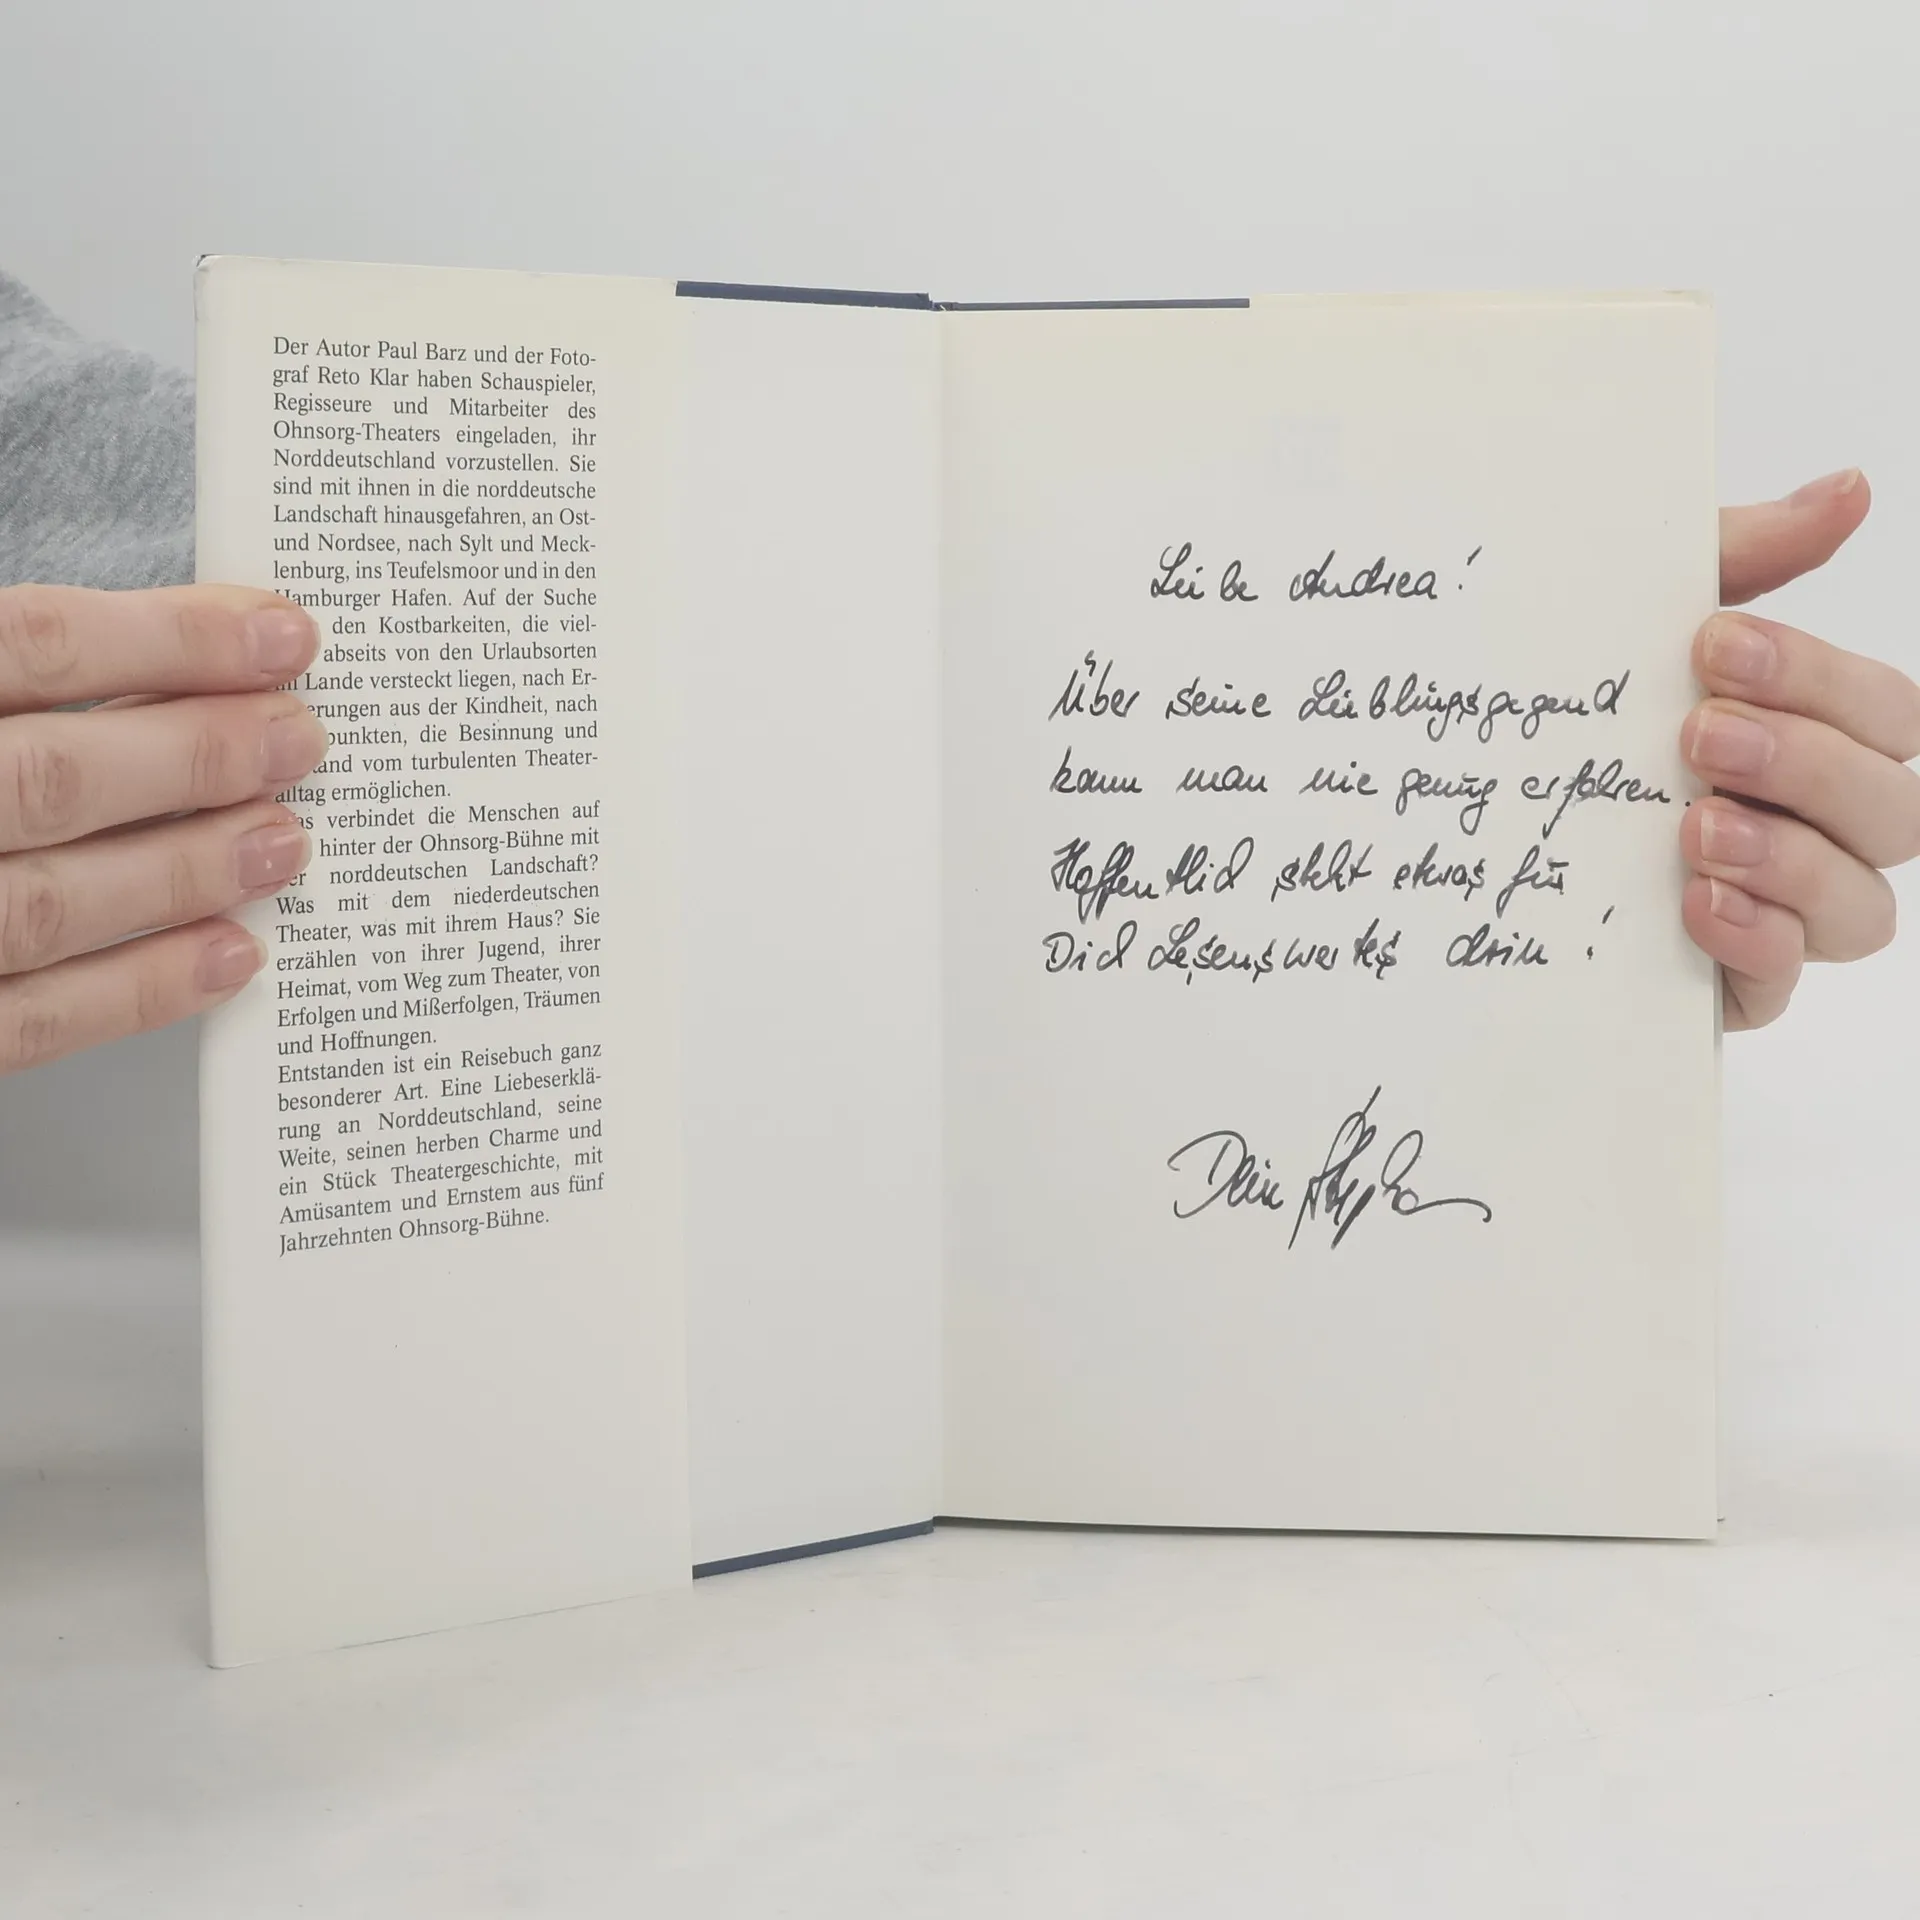 Der Autor Paul Barz und der Foto-
graf Reto Klar haben Schauspieler,
Regisseure und Mitarbeiter des
Ohnsorg-Theaters eingeladen, ihr
Norddeutschland vorzustellen. Sie
sind mit ihnen in die norddeutsche
Landschaft hinausgefahren, an Ost-
und Nordsee, nach Sylt und Meck-
lenburg, ins Teufelsmoor und in den
Hamburger Hafen. Auf der Suche
den Kostbarkeiten, die viel-
abseits von den Urlaubsorten
im Lande versteckt liegen, nach Er-
erungen aus der Kindheit, nach
punkten, die Besinnung und
and vom turbulenten Theater-
alltag ermöglichen.
Was verbindet die Menschen auf
hinter der Ohnsorg-Bühne mit
der norddeutschen Landschaft?
Was mit dem niederdeutschen
Theater, was mit ihrem Haus? Sie
erzählen von ihrer Jugend, ihrer
Heimat, vom Weg zum Theater, von
Erfolgen und Mißerfolgen, Träumen
und Hoffnungen.
Entstanden ist ein Reisebuch ganz
besonderer Art. Eine Liebeserklä-
rung an Norddeutschland, seine
Weite, seinen herben Charme und
ein Stück Theatergeschichte, mit
Amüsantem und Ernstem aus fünf
Jahrzehnten Ohnsorg-Bühne.
Liebe Andrea!
Über seine Lieblingsgegend
kann man nie genug erfahren.
Hoffentlich steht etwas für
Dich Lesenswertes drin!
Dein Stephan